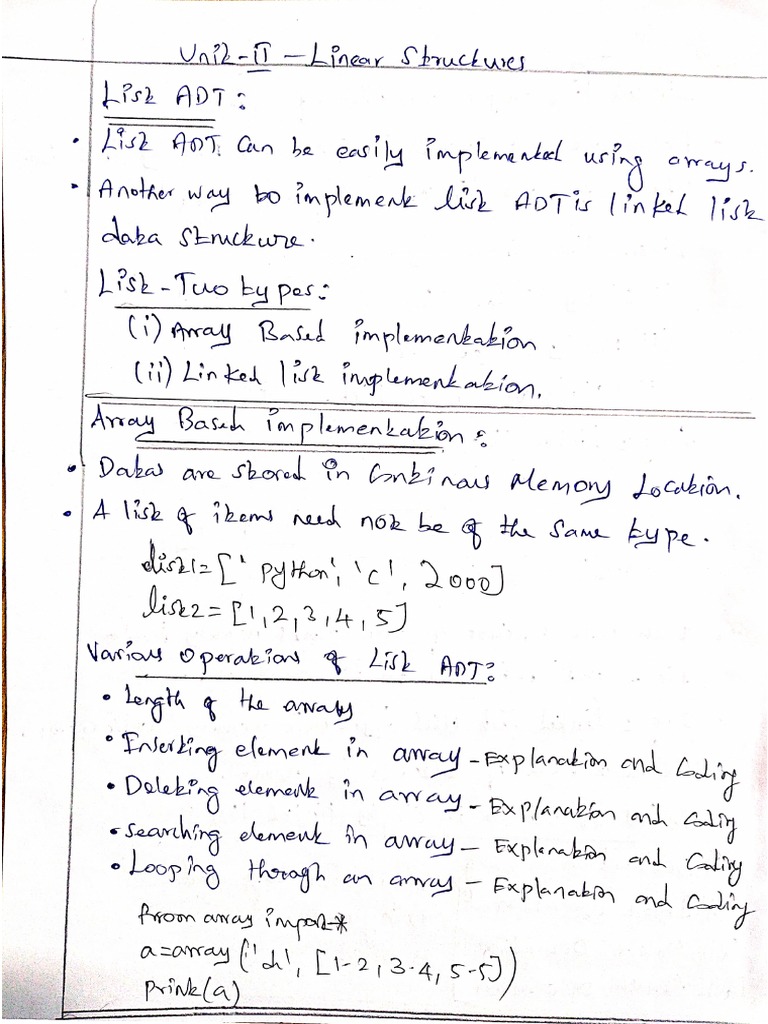 Unit-II – Linear Structures
List ADT:
• List ADT can be easily implemented using arrays.
• Another way to implement list ADT is linked list
data structure.
List - Two types:
(i) Array Based implementation.
(ii) Linked list implementation.
Array Based implementation:
• Datas are stored in Continous Memory Location.
• A list of items need not be of the same type.
list1=['python', 'c', 2000]
list2=[1,2,3,4,5]
Various Operations of List ADT:
• Length of the arrays
• Inserting element in array - Explanation and Coding
• Deleting element in array - Explanation and Coding
• Searching element in array - Explanation and Coding
• Looping through an array - Explanation and Coding
from array import *
a=array('d', [1.2, 3.4, 5.5])
print(a)